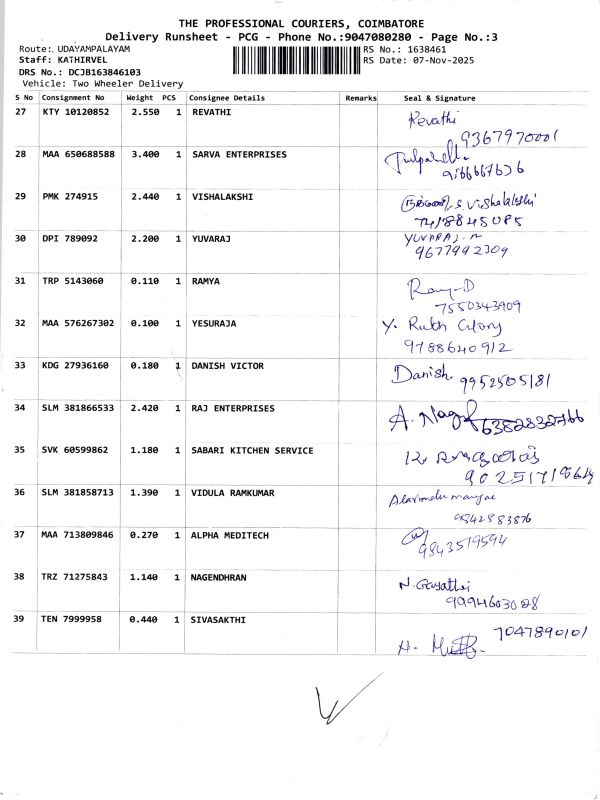 THE PROFESSIONAL COURIERS, COIMBATORE
Delivery Runsheet - PCG - Phone No.:9047080280 - Page No.:3
Route: UDAYAMPALAYAM
RS No.: 1638461
Staff: KATHIRVEL
RS Date: 07-Nov-2025
DRS No.: DCJB163846103
Vehicle: Two Wheeler Delivery
S No Consignment No Weight PCS Consignee Details Remarks Seal & Signature
27 KTY 10120852 2.550 1 REVATHI Revathi
9367970001
28 MAA 650688588 3.400 1 SARVA ENTERPRISES
9166667636
29 PMK 274915 2.440 1 VISHALAKSHI S. Vishalakshi
30 DPI 789092 2.200 1 YUVARAJ YUVARAJ.
9677992309
31 TRP 5143060 0.110 1 RAMYA
7550343909
32 MAA 576267302 0.100 1 YESURAJA Y. Ruth Glory
9788640912
33 KDG 27936160 0.180 1 DANISH VICTOR Danish 9952505181
34 SLM 381866533 2.420 1 RAJ ENTERPRISES A.
6382832766
35 SVK 60599862 1.180 1 SABARI KITCHEN SERVICE
36 SLM 381858713 1.390 1 VIDULA RAMKUMAR Alarmelu mangai
9842883876
37 MAA 713809846 0.270 1 ALPHA MEDITECH
9843519594
38 TRZ 71275843 1.140 1 NAGENDHRAN N. Gayathri
9994603028
39 TEN 7999958 0.440 1 SIVASAKTHI 7047890101